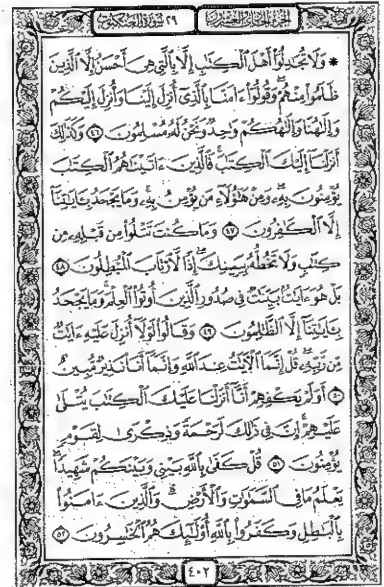 الجزء الحادي والعشرون
٢٩ سورة العنكبوت
* وَلَا تُجَٰدِلُوٓا۟ أَهْلَ ٱلْكِتَٰبِ إِلَّا بِٱلَّتِى هِىَ أَحْسَنُ إِلَّا ٱلَّذِينَ
ظَلَمُوا۟ مِنْهُمْ ۖ وَقُولُوٓا۟ ءَامَنَّا بِٱلَّذِىٓ أُنزِلَ إِلَيْنَا وَأُنزِلَ إِلَيْكُمْ
وَإِلَٰهُنَا وَإِلَٰهُكُمْ وَٰحِدٌ وَنَحْنُ لَهُۥ مُسْلِمُونَ ٤٦ وَكَذَٰلِكَ
أَنزَلْنَآ إِلَيْكَ ٱلْكِتَٰبَ ۚ فَٱلَّذِينَ ءَاتَيْنَٰهُمُ ٱلْكِتَٰبَ
يُؤْمِنُونَ بِهِۦ ۖ وَمِنْ هَٰٓؤُلَآءِ مَن يُؤْمِنُ بِهِۦ ۚ وَمَا يَجْحَدُ بِـَٔايَٰتِنَآ
إِلَّا ٱلْكَٰفِرُونَ ٤٧ وَمَا كُنتَ تَتْلُوا۟ مِن قَبْلِهِۦ مِن
كِتَٰبٍ وَلَا تَخُطُّهُۥ بِيَمِينِكَ ۖ إِذًا لَّٱرْتَابَ ٱلْمُبْطِلُونَ ٤٨
بَلْ هُوَ ءَايَٰتٌۢ بَيِّنَٰتٌ فِى صُدُورِ ٱلَّذِينَ أُوتُوا۟ ٱلْعِلْمَ ۚ وَمَا يَجْحَدُ
بِـَٔايَٰتِنَآ إِلَّا ٱلظَّٰلِمُونَ ٤٩ وَقَالُوا۟ لَوْلَآ أُنزِلَ عَلَيْهِ ءَايَٰتٌ
مِّن رَّبِّهِۦ ۖ قُلْ إِنَّمَا ٱلْـَٔايَٰتُ عِندَ ٱللَّهِ وَإِنَّمَآ أَنَا۠ نَذِيرٌ مُّبِينٌ
٥٠ أَوَلَمْ يَكْفِهِمْ أَنَّآ أَنزَلْنَا عَلَيْكَ ٱلْكِتَٰبَ يُتْلَىٰ
عَلَيْهِمْ ۚ إِنَّ فِى ذَٰلِكَ لَرَحْمَةً وَذِكْرَىٰ لِقَوْمٍ
يُؤْمِنُونَ ٥١ قُلْ كَفَىٰ بِٱللَّهِ بَيْنِى وَبَيْنَكُمْ شَهِيدًا ۖ
يَعْلَمُ مَا فِى ٱلسَّمَٰوَٰتِ وَٱلْأَرْضِ ۗ وَٱلَّذِينَ ءَامَنُوا۟
بِٱلْبَٰطِلِ وَكَفَرُوا۟ بِٱللَّهِ أُو۟لَٰٓئِكَ هُمُ ٱلْخَٰسِرُونَ ٥٢
٤٠٢